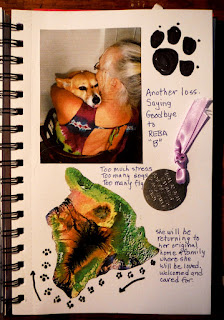 Another loss.
Saying
Goodbye
to
REBA
"B"
Too much stress
Too many dogs
Too many
She will be
returning to
her original
home & family
where she
will be loved,
welcomed and
cared for.